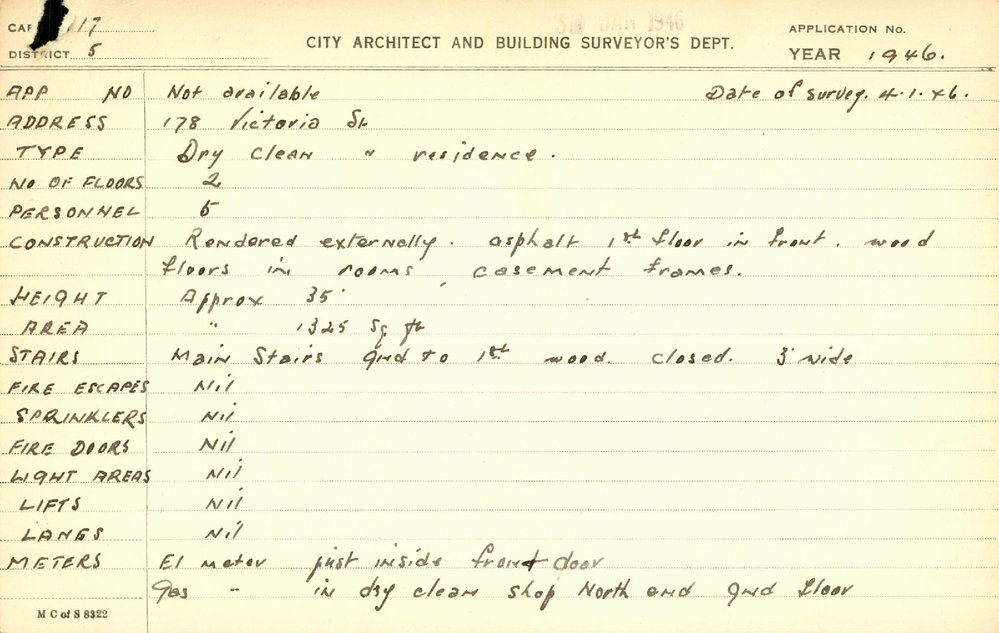 CAR 17 30 JAN 1946 APPLICATION No.
DISTRICT 5 CITY ARCHITECT AND BUILDING SURVEYOR'S DEPT. YEAR 1946.
APP NO Not available Date of survey. 4.1.46.
ADDRESS 178 Victoria St
TYPE Dry Clean " residence.
NO OF FLOORS 2
PERSONNEL 5
CONSTRUCTION Rendered externally. asphalt 1st floor in front. wood
floors in rooms, casement frames.
HEIGHT Approx 35'
AREA " 1325 Sq ft
STAIRS Main Stairs Gnd to 1st wood. closed. 3' wide
FIRE ESCAPES Nil
SPRINKLERS Nil
FIRE DOORS Nil
LIGHT AREAS Nil
LIFTS Nil
LANES Nil
METERS El meter just inside front door
Gas " in dry clean shop North end Gnd floor
M C of S 8322